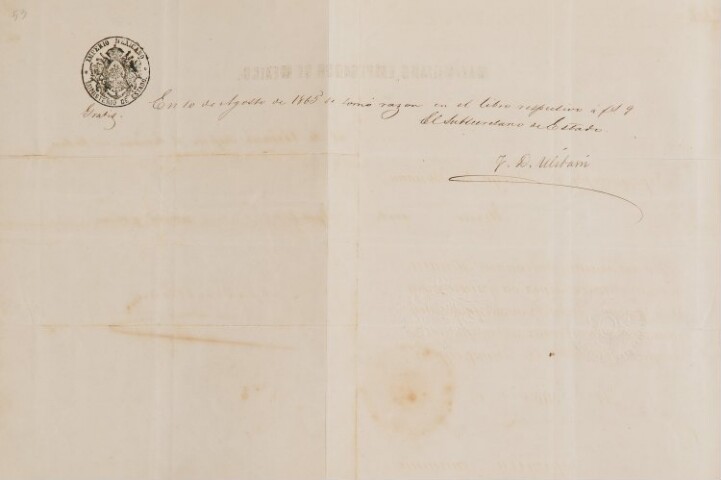 IMPERIO MEXICANO
MINISTERIO DE
En 10 de Agosto de 1865 se tomó razon en el libro respectivo á f 9
Gratis.
El Subsecretario de Estado
J. D. Ulibarri